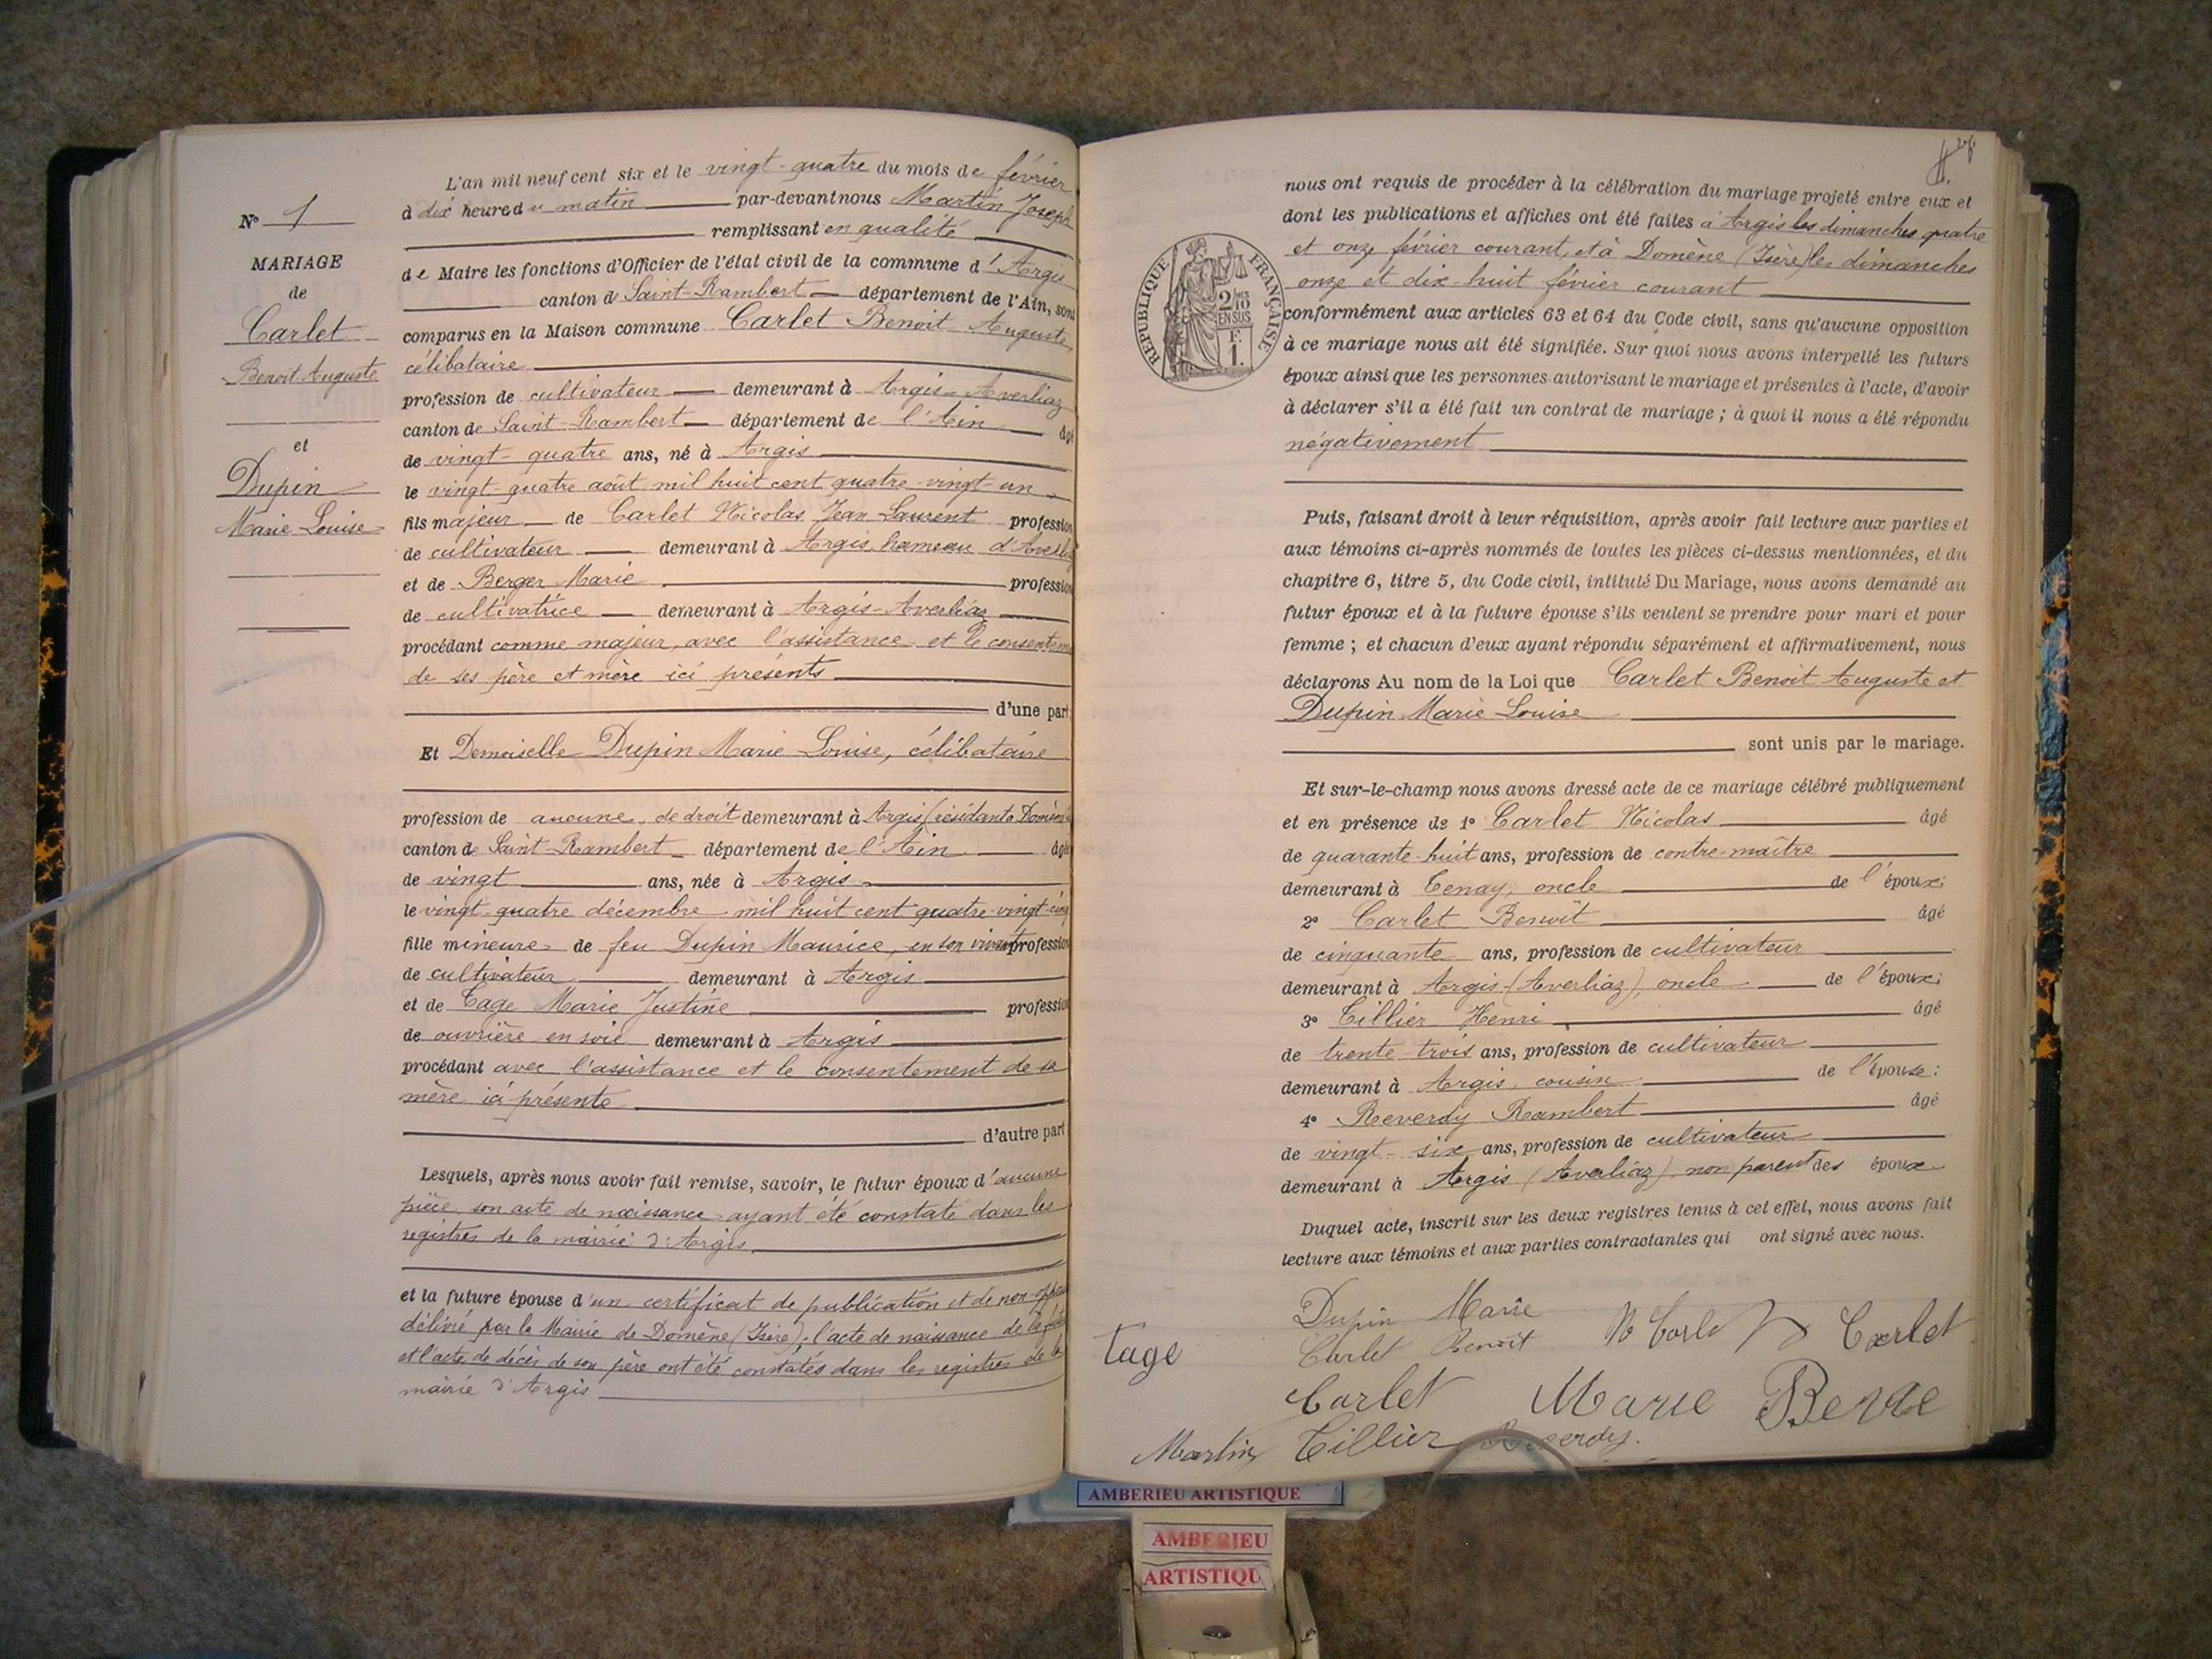 N° 1
MARIAGE
de
Carlet
Benoit Auguste
et
Dupin
Marie Louise
L'an mil neuf cent six et le vingt-quatre du mois de février
à dix heures du matin par-devant nous Martin Joseph
remplissant en qualité
de Maire les fonctions d'Officier de l'état civil de la commune d'Argis
canton de Saint-Rambert département de l'Ain, sont
comparus en la Maison commune Carlet Benoit Auguste,
célibataire
profession de cultivateur demeurant à Argis-Averliaz
canton de Saint-Rambert département de l'Ain âgé
de vingt-quatre ans, né à Argis
le vingt-quatre août mil huit cent quatre-vingt-un
fils majeur de Carlet Nicolas Jean Laurent profession
de cultivateur demeurant à Argis, hameau d'Averliaz
et de Berger Marie profession
de cultivatrice demeurant à Argis-Averliaz
procédant comme majeur, avec l'assistance et le consentem
de ses père et mère ici présents
d'une part
Et Demoiselle Dupin Marie Louise, célibataire
profession de aucune, de droit demeurant à Argis (résidant à Domène
canton de Saint-Rambert département de l'Ain âgée
de vingt ans, née à Argis
le vingt-quatre décembre mil huit cent quatre-vingt-cinq
fille mineure de feu Dupin Maurice, en son vivant profession
de cultivateur demeurant à Argis
et de Tage Marie Justine profession
de ouvrière en soie demeurant à Argis
procédant avec l'assistance et le consentement de sa
mère ici présente
d'autre part
Lesquels, après nous avoir fait remise, savoir, le futur époux d'aucune
pièce, son acte de naissance ayant été constaté dans les
registres de la mairie d'Argis
et la future épouse d'un certificat de publication et de non-oppos
délivré par la Mairie de Domène (Isère); l'acte de naissance de la
et l'acte de décès de son père ont été constatés dans les registres de la
mairie d'Argis
nous ont requis de procéder à la célébration du mariage projeté entre eux et
dont les publications et affiches ont été faites à Argis les dimanches quatre
et onze février courant, et à Domène (Isère) les dimanches
onze et dix-huit février courant
RÉPUBLIQUE FRANÇAISE
2/10
EN SUS
F.
1.
conformément aux articles 63 et 64 du Code civil, sans qu'aucune opposition
à ce mariage nous ait été signifiée. Sur quoi nous avons interpellé les futurs
époux ainsi que les personnes autorisant le mariage et présentes à l'acte, d'avoir
à déclarer s'il a été fait un contrat de mariage ; à quoi il nous a été répondu
négativement
Puis, faisant droit à leur réquisition, après avoir fait lecture aux parties et
aux témoins ci-après nommés de toutes les pièces ci-dessus mentionnées, et du
chapitre 6, titre 5, du Code civil, intitulé Du Mariage, nous avons demandé au
futur époux et à la future épouse s'ils veulent se prendre pour mari et pour
femme ; et chacun d'eux ayant répondu séparément et affirmativement, nous
déclarons Au nom de la Loi que Carlet Benoit Auguste et
Dupin Marie Louise
sont unis par le mariage.
Et sur-le-champ nous avons dressé acte de ce mariage célébré publiquement
et en présence de 1° Carlet Nicolas âgé
de quarante-huit ans, profession de contre-maître
demeurant à Tenay, oncle de l'époux;
2° Carlet Benoît âgé
de cinquante ans, profession de cultivateur
demeurant à Argis-(Averliaz), oncle de l'époux;
3° Tillier Henri âgé
de trente-trois ans, profession de cultivateur
demeurant à Argis, cousin de l'épouse;
4° Reverdy Rambert âgé
de vingt-six ans, profession de cultivateur
demeurant à Argis (Averliaz) non parent des époux
Duquel acte, inscrit sur les deux registres tenus à cet effet, nous avons fait
lecture aux témoins et aux parties contractantes qui ont signé avec nous.
Dupin Marie
tage Carlet Benoit Carlet
Carlet Marie
Martin Tillier Reverdy.
AMBERIEU ARTISTIQUE
AMBERIEU
ARTISTIQU